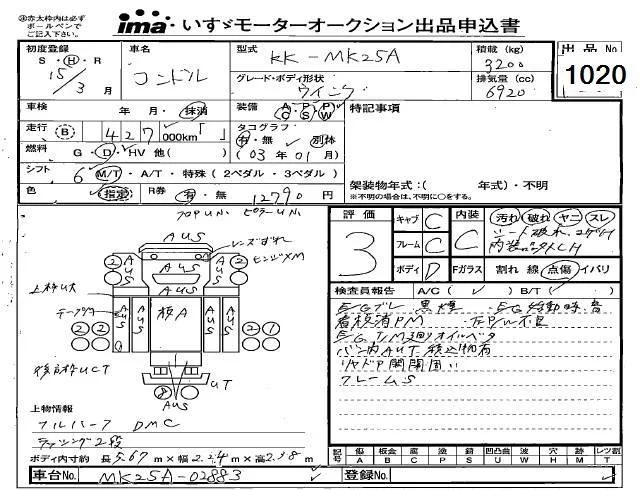 ㊟赤太枠内は必ず
ボールペンで
ご記入下さい。
ima・いすゞモーターオークション出品申込書
初度登録 車名 型式 KK-MK25A 積載(kg) 3200 出品No
S・H・R 15/3月 コンドル グレード・ボディ形状 ウイング 排気量(cc) 6920 1020
車検 年・月・抹消 装備 AC・PS・PW 特記事項
走行 B 427,000km「 」 タコグラフ 有・無 別体
燃料 G・D・HV 他( ) (03年01月)
シフト 6 M/T・A/T・特殊(2ペダル・3ペダル) 架装物年式:( 年式)・不明
色 指定 R券 有・無 12790円 ※不明の場合は、不明に○をする。
評価 3 キャブ C 内装 C 汚れ・破れ・ヤニ・スレ
フレーム C シート破れ、コゲ穴
ボディ D Fガラス 割れ 線 点傷 イバリ
検査員報告 A/C( ) B/T( )
E/Gブレ 黒煙 E/G始動時、音
看板消PM
E/G T/M廻りオイルベタ
バン内AUT
リヤドア開閉固い
フレームS
AUS
レンズすれ
ヒンジXM
AUS
上枠UT
2 2 AUS AUS 板A AUS AUS 2 2
2 2 2 1
後方枠UCT
UT
AUS
上物情報
フルハーフ DMC
ラッシング2段
ボディ内寸約 長5.67m×幅2.24m×高2.38m
記号 傷A 板金B 腐C 塗P 錆S 凹凸曲U 波W 穴H 跡M レツ割T
車台No. MK25A-02883 登録No.